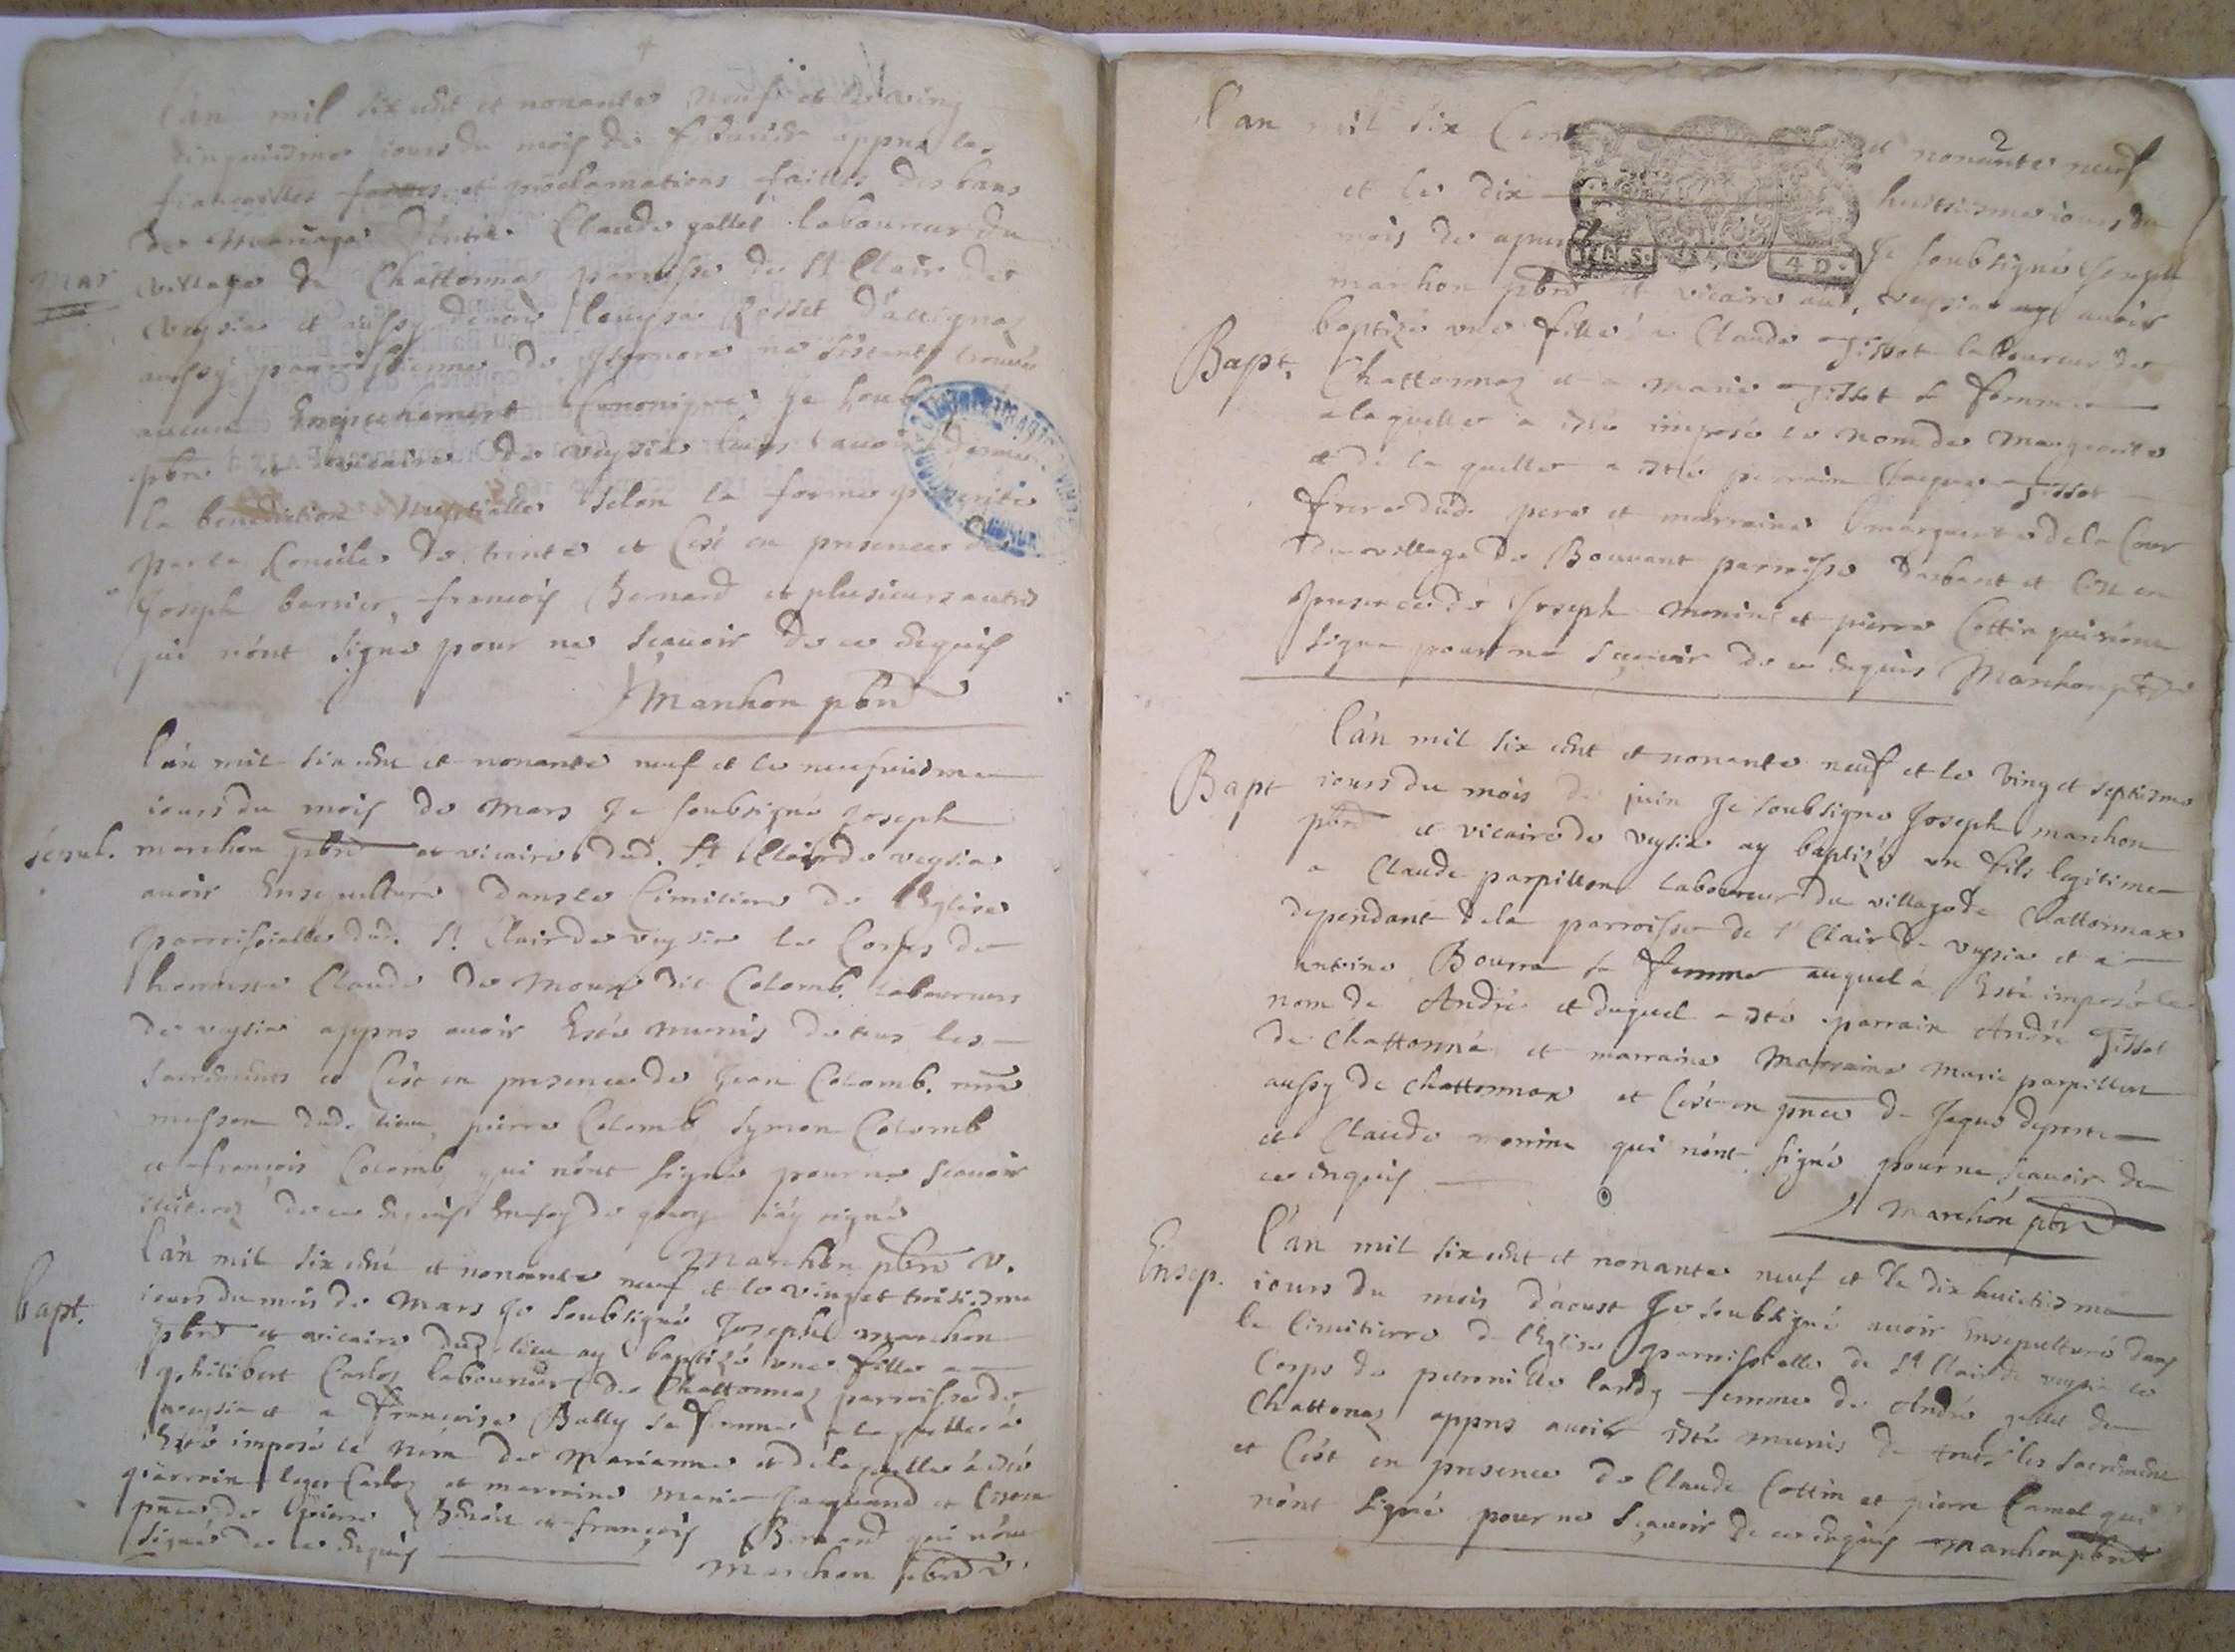 l'an mil six cent et nonante neuf et le ving
cinquiesme jour du mois de febvrier appres les
fiancailles et proclamations faittes des bans
de Mariage d'entre Claude gallet laboureur du
Mar
village de Chattonnaz parroisse de St Clair de
veysia et aussy de Louyse Rosset d'
aussy parroissienne de ne s'estant trouvés
aucun Empechement Canonique Je soub
pbre et vicaire de veysia leurs avoir donné
la benediction nuptialle selon la forme prescritte
par le Concile de trente et C'est en presence de
Joseph barrier, francois Bernard et plusieurs autres
qui n'ont signé pour ne scavoir de ce enquis
Marchon pbre
l'an mil six cent et nonante neuf et le neufviesme
jours du mois de Mars Je soubsigné Joseph
sépul. marchon pbre et vicaire dud. St Clair de veysia
avoir Ensepulturé dans le Cimitiere de l'Eglise
parroissialle dud. St Clair de veysia le Corps de
honneste Claude de Moux dit Colomb. laboureurs
de veysia appres avoir Esté munis de tous les
sacrements et C'est en presence de Jean Colomb. me
masson dud. lieu, pierre Colomb Symon Colomb
et françois Colomb qui n'ont signé pour ne scavoir
de ce enquis En foy de quoy j'ay signé
Marchon pbre v.
l'an mil six cent et nonante neuf et le vinget troisiesme
bapt. jours du mois de Mars Je soubsigné Joseph Marchon
pbre et vicaire dud. lieu ay baptizé une fille a
philibert Carloz laboureur de Chattonnaz parroisse de
veysia et a Françoise Bully sa femme a la quelle a
Esté imposé le nom de Marianne et de la quelle a esté
parrain leger Carloz et marraine Marie Jacquand et C'est en
pnce de pierre Benoit et françois Bernard qui n'ont
signé de ce enquis
Marchon pbre
2
l'an mil six Cent et nonante neuf
et le dix huictiesme jours du
mois de Je soubsigné Joseph
marchon pbre et vicaire aud. veysia ay avoir
baptizé une fille a Claude Tissot laboureur de
Bapt. Chattonnaz et a Marie Tissot sa femme
a laquelle a esté imposé le nom de Marguerite
et de la quelle a esté parrain Jacques Tissot
frere dud. pere et marraine marguerite de la Cour
du village de Bouvant parroisse darbant et C'est en
presence de Joseph Monin et pierre Cottin qui n'ont
signé pour ne scavoir de ce enquis Marchon pbre
l'an mil six cent et nonante neuf et le vinget septiesme
Bapt jours du mois de juin Je soubsigné Joseph marchon
pbre et vicaire de veysia ay baptizé un fils legitime
a Claude parpillon laboureur du village de Chattonnax
dependant de la parroisse de st Clair de veysia et a
antoine Bourra sa femme auquel a Esté imposé le
nom de André et duquel a esté parrain André Tissot
de Chattonna et marraine Marraine Marie parpillon
aussy de Chattonnax et C'est en pnce de Jaque
et Claude monin qui n'ont signé pour ne scavoir de
ce enquis
Marchon pbre
l'an mil six cent et nonante neuf et le dix huictiesme
Ensep. jours du mois d'aoust Je soubsigné avoir Ensepulturé dans
le Cimitierre de l'Eglise parroissialle de St Clair de veysia le
Corps de pernette lardy femme de André gallet de
Chattonaz appres avoir Esté munis de tout les sacrement
et C'est en presence de Claude Cottin et pierre Camel qui
n'ont signé pour ne sçavoir de ce enquis Marchon pbre